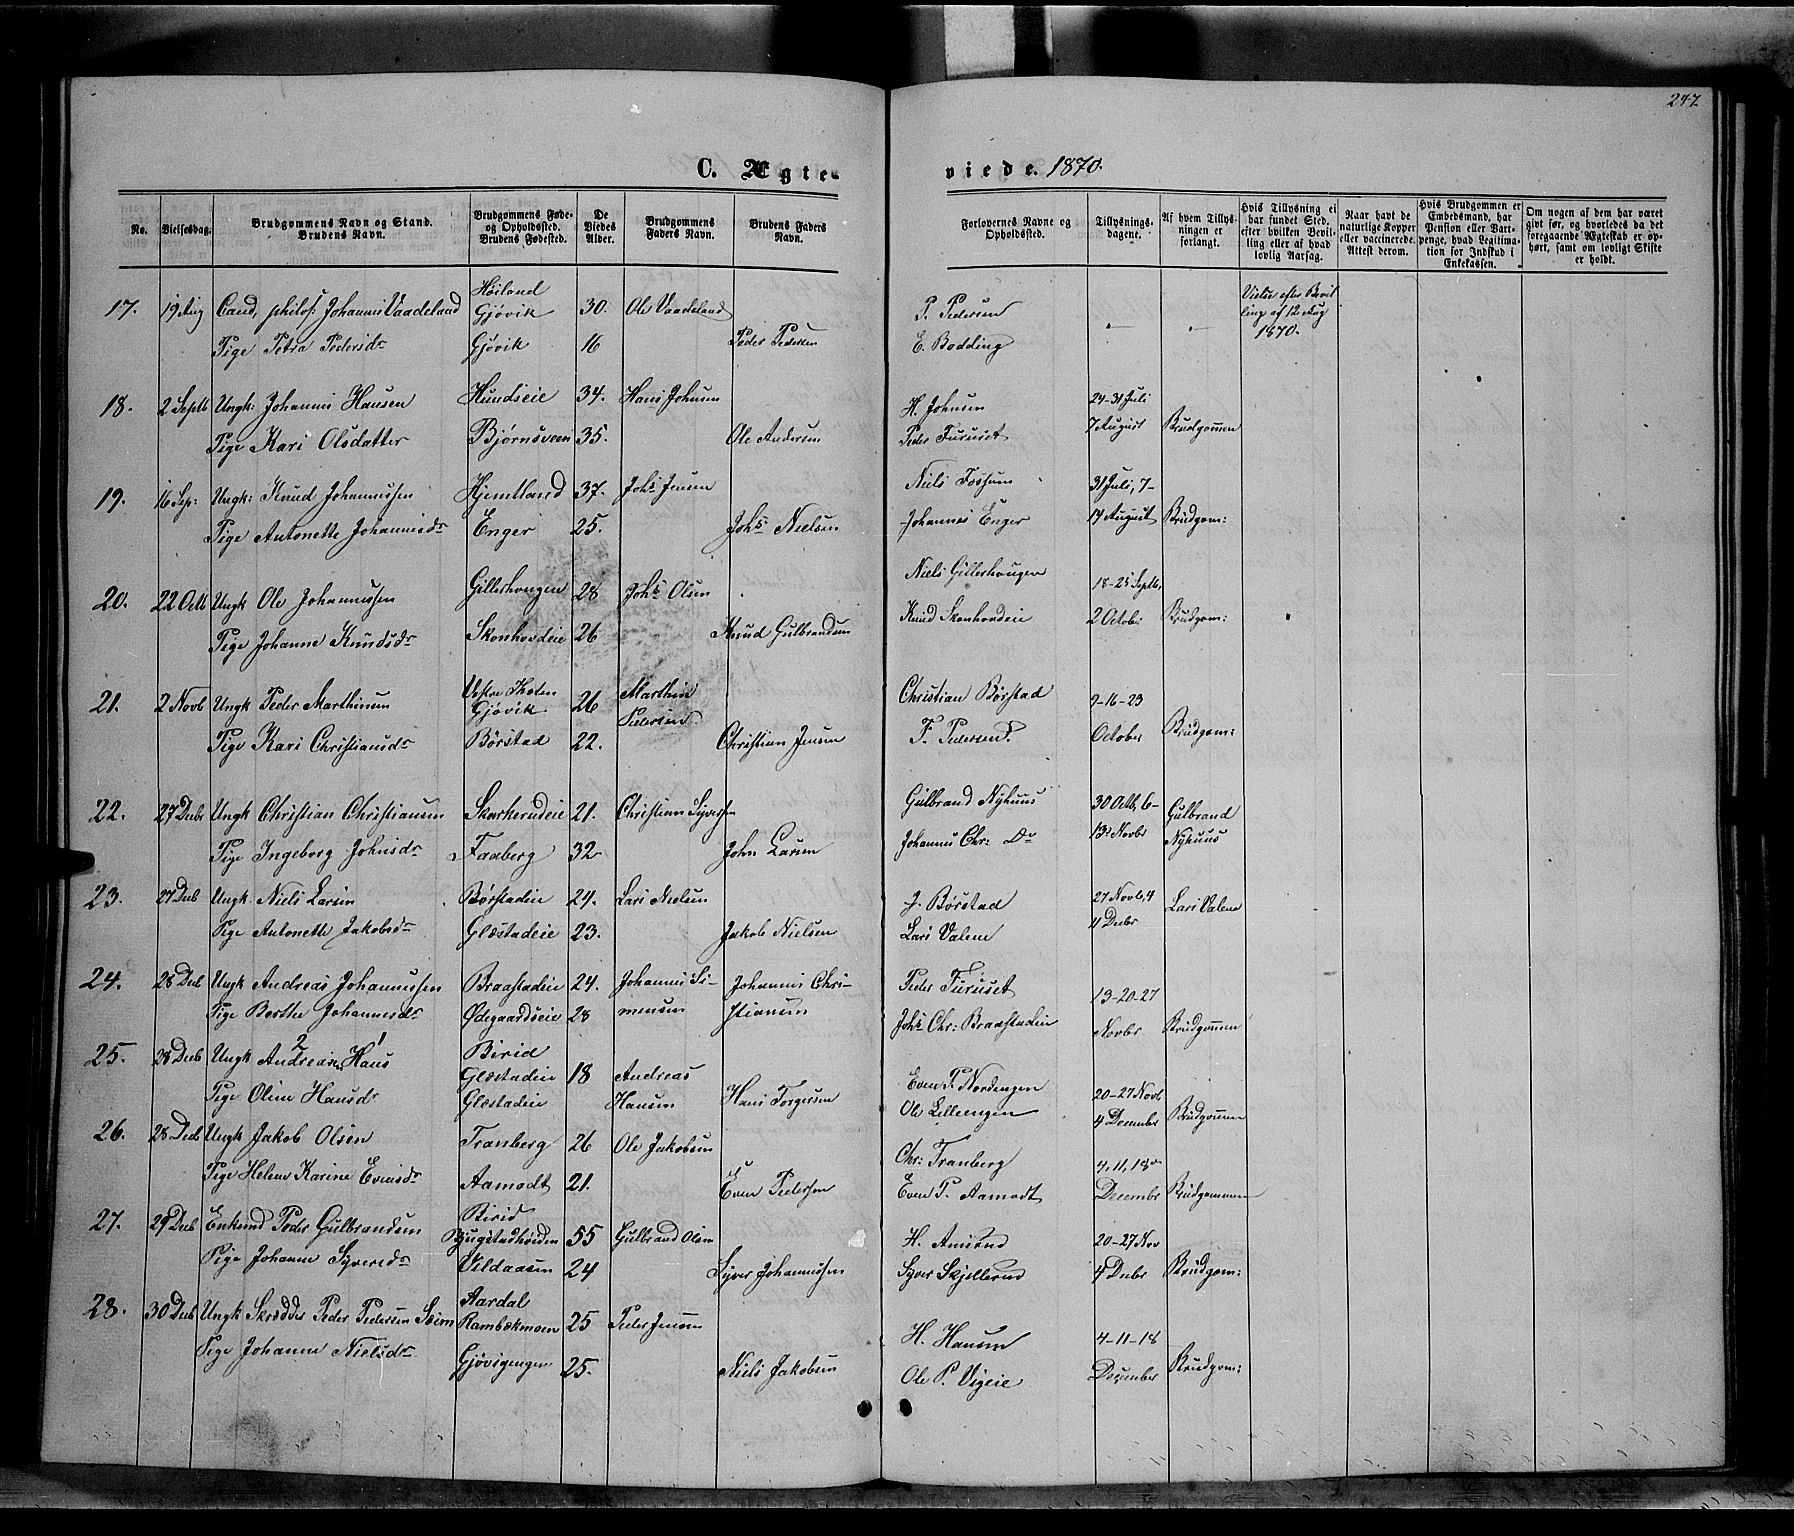 247
C. Ægteviede. 1870.
No. Vielsesdag. Brudgommens Navn og Stand. Brudens Navn. Brudgommens Føde- og Opholdssted. Brudens Fødested. De Viedes Alder. Brudgommens Faders Navn. Brudens Faders Navn. Forlovernes Navne og Opholdssted. Tillysningsdagene. Af hvem Tillysningen er forlangt. Hvis Tillysning ei har fundet Sted, efter hvilken Bevilling eller af hvad lovlig Aarsag. Naar havt de naturlige Kopper eller vaccinerede. Attest derom. Hvis Brudgommen er Embedsmand, har Pension eller Vartpenge, hvad Legitimation for Indskud i Enkekassen. Om nogen af dem har været givt før, og hvorledes da det foregaaende Ægteskab er ophørt, samt om lovligt Skifte er holdt.
17. 19 Aug Cand. philos: Johannes Vaadeland Höiland Gjøvik 30. Ole Vaadeland P. Pedersen — — Vielse efter Bevilling af 12 Aug 1870.
Pige Petra Pedersdr Gjøvik 16 Peder Pedersen E. Bodding
18. 2 Septb Ungk: Johannes Hansen Hundseie 34. Hans Johnsen H. Johnsen 24-31 Juli
Pige Kari Olsdatter Bjørnsveen 35. Ole Andersen Peder Furuset 7 August Brudgommen
19. 16 Sep: Ungk: Knud Johannessen Hjemtland 37. Johs Jensen Niels Fossum 31 Juli, 7-
Pige Antonette Johannesdr Enger 25. Johs Nielsen Johannes Enger 14 August Brudgom:
20. 22 Octb Ungk Ole Johannessen Gillerhaugen 28 Johs Olsen Niels Gillerhaugen 18-25 Septb,
Pige Johanne Knudsdr Skonhovdeie 26 Knud Gulbrandsen Knud Skonhovdeie 2 October Brudgom:
21. 2 Novb Ungk Peder Marthinsen Vestre Thoten Gjøvik 26 Marthin Pedersen Christian Børstad 9-16-23
Pige Kari Christiansdr Børstad 22. Christian Jensen F. Pedersen October Brudgom:
22. 27 Decbr Ungk Christian Christiansen Skarkerudeie 21. Christian Syversen Gulbrand Nyhuus 30 Octb, 6- Gulbrand
Pige Ingeborg Johnsdr Faaberg 32 John Larsen Johannes Chr: Do 13 Novbr Nyhuus
23. 27 Decb Ungk. Niels Larsen Børstadeie 24. Lars Nielsen J. Børstad 27 Novb, 4 Lars Valene
Pige Antonette Jakobsdr Glæstadeie 23. Jakob Nielsen Lars Valene 11 Decbr
24. 28 Decb Ungk Andreas Johannessen Braastadeie 24. Johannes Simensen Johannes Christiansen Peder Furuset 13-20-27
Pige Berthe Johannesdr Ødegaardseie 28 Johs Chr: Braastadeie Novbr Brudgommen
25. 28 Decb Ungk Andreas 2 Hans 1 Birid Glæstadeie 18 Andreas Hansen Even P. Nordengen 20-27 Novb
Pige Oline Hansdr Glæstadeie Hans Torgersen Ole Lilleengen 4 December Brudgommen
26. 28 Decb Ungk Jakob Olsen Tranberg 26 Ole Jakobsen Chr: Tranberg 4, 11, 18
Pige Helene Karine Evensdr Aamodt 21. Even Pedersen Even P. Aamodt Decembr Brudgommen
27. 29 Decb Enkemd Peder Gulbrandsen Birid 55 Gulbrand Olsen H. Amlund 20-27 Nov
Pige Johanne Syversdr Vildaasen 24 Syver Johannessen Syver Skjellerud 4 Decbr Brudgom:
28. 30 Decb Ungk Skrædder Peder Pedersen Seim Aardal Rambækmoen 25 Peder Jensen H. Hansen 4-11-18
Pige Johanne Nielsdr Gjøvigengen 25. Niels Jakobsen Ole P. Vigeie December Brudgom: